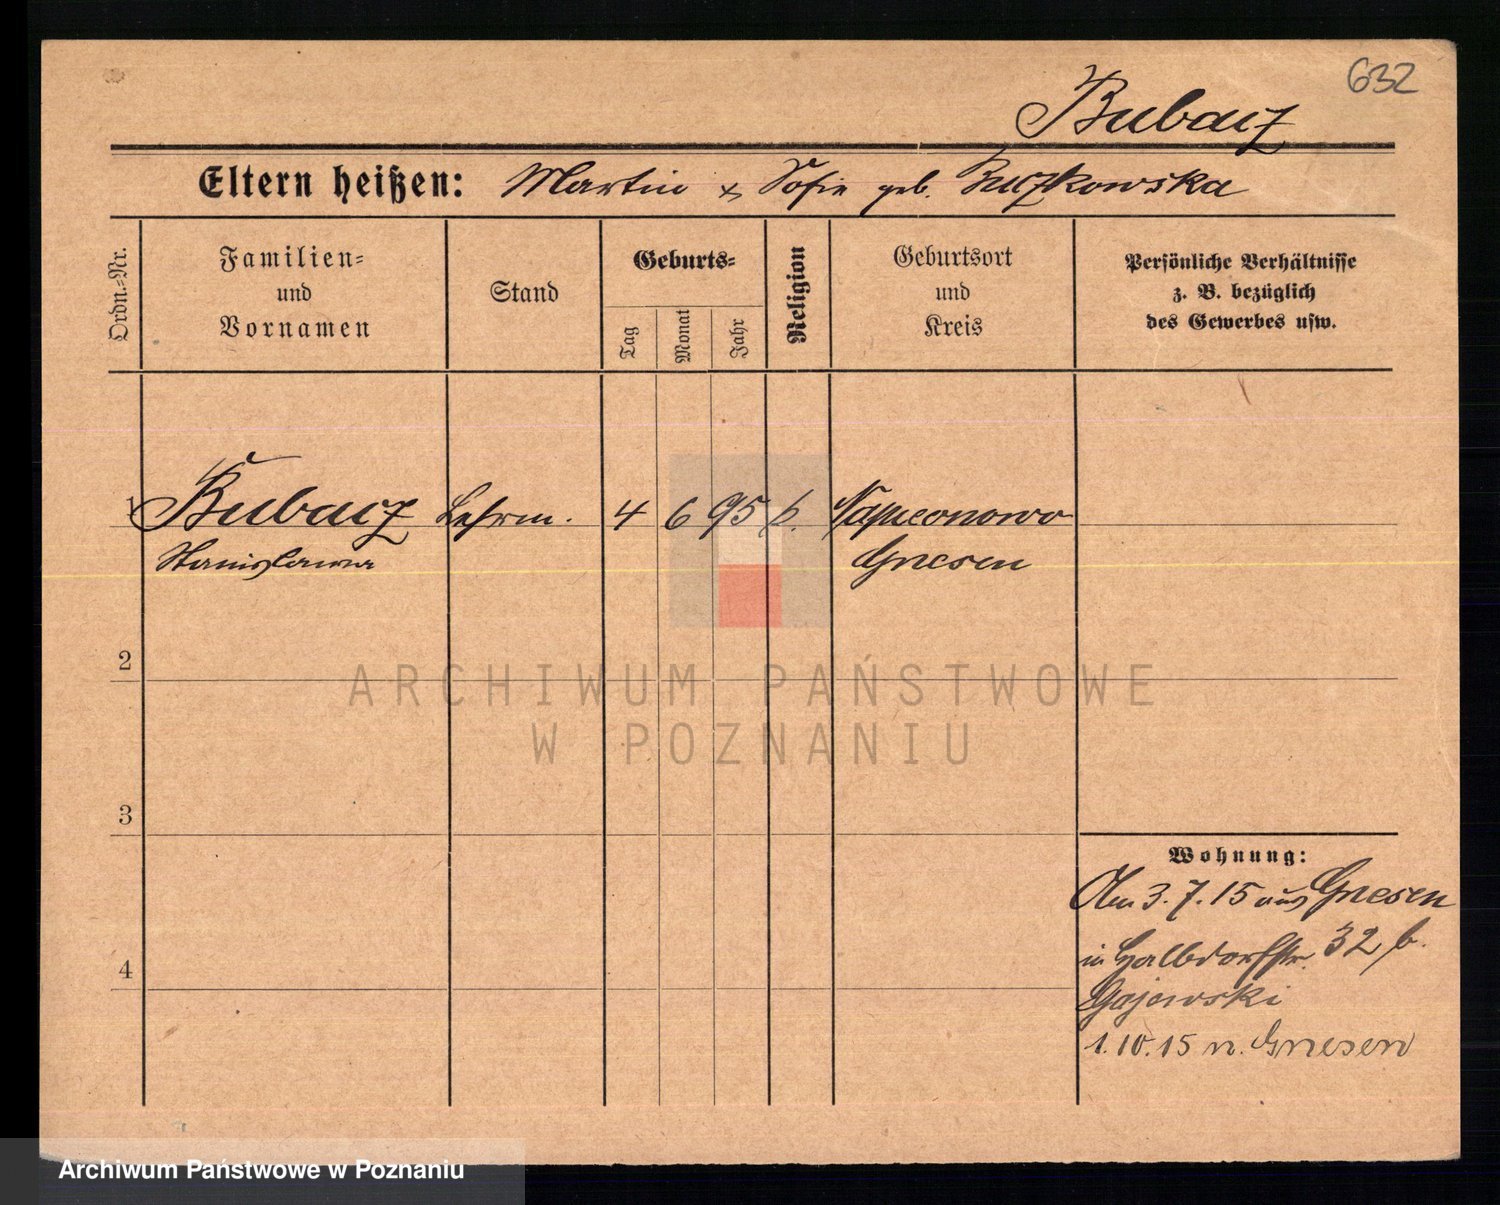 632
Bubacz
Eltern heißen: Martin x Sofie geb.
Ordn.=Nr.
Familien=
und
Vornamen
Stand
Geburts=
Tag
Monat
Jahr
Religion
Geburtsort
und
Kreis
Persönliche Verhältnisse
z. B. bezüglich
des Gewerbes usw.
1 Bubacz 4 6 95
Stanislawa Gnesen
2
3
4
Wohnung:
3.7.15 aus Gnesen
in Halbdorfstr. 32 b.
Gajewski
1.10.15 n. Gnesen
ARCHIWUM PAŃSTWOWE
W POZNANIU
Archiwum Państwowe w Poznaniu